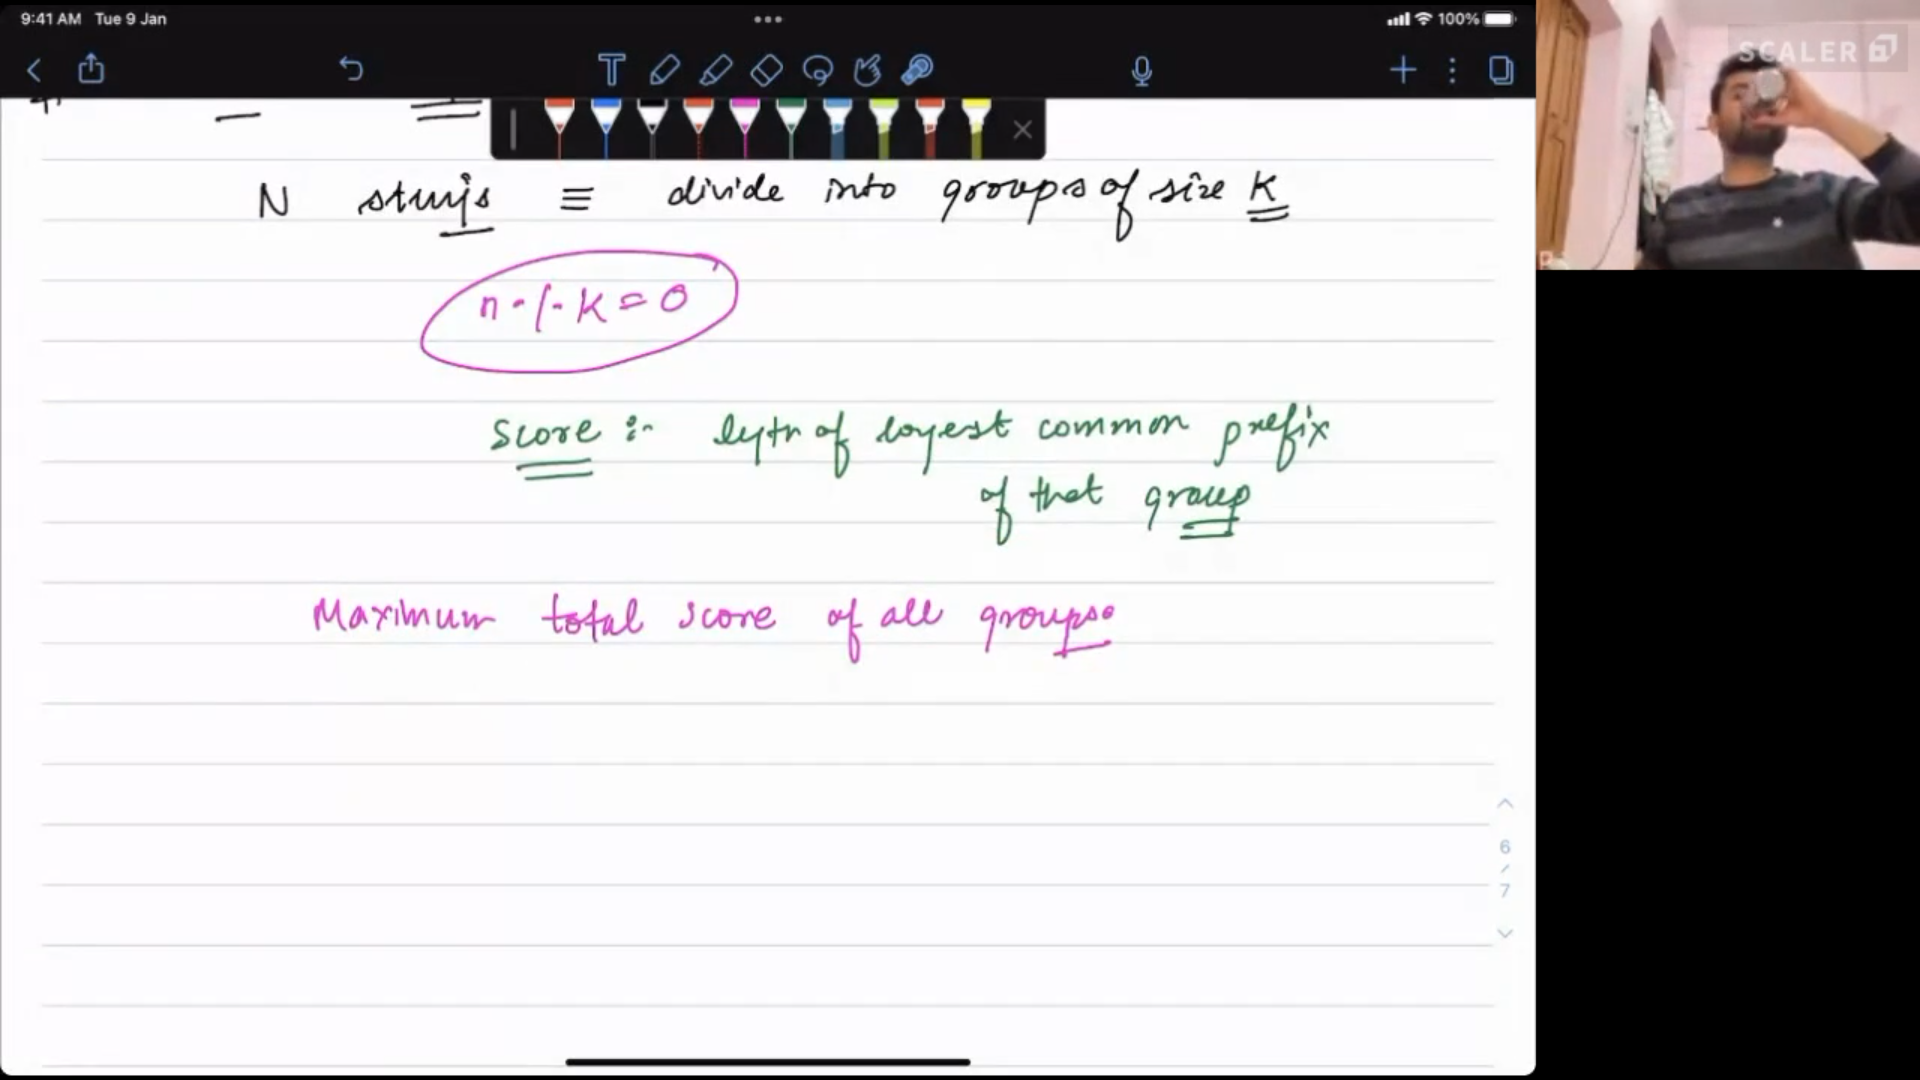 9:41 AM Tue 9 Jan
100%
SCALER
T
N strings ≡ divide into groups of size K
n % K = 0
Score :- length of longest common prefix
of that group
Maximum total score of all groups.
6
/
7